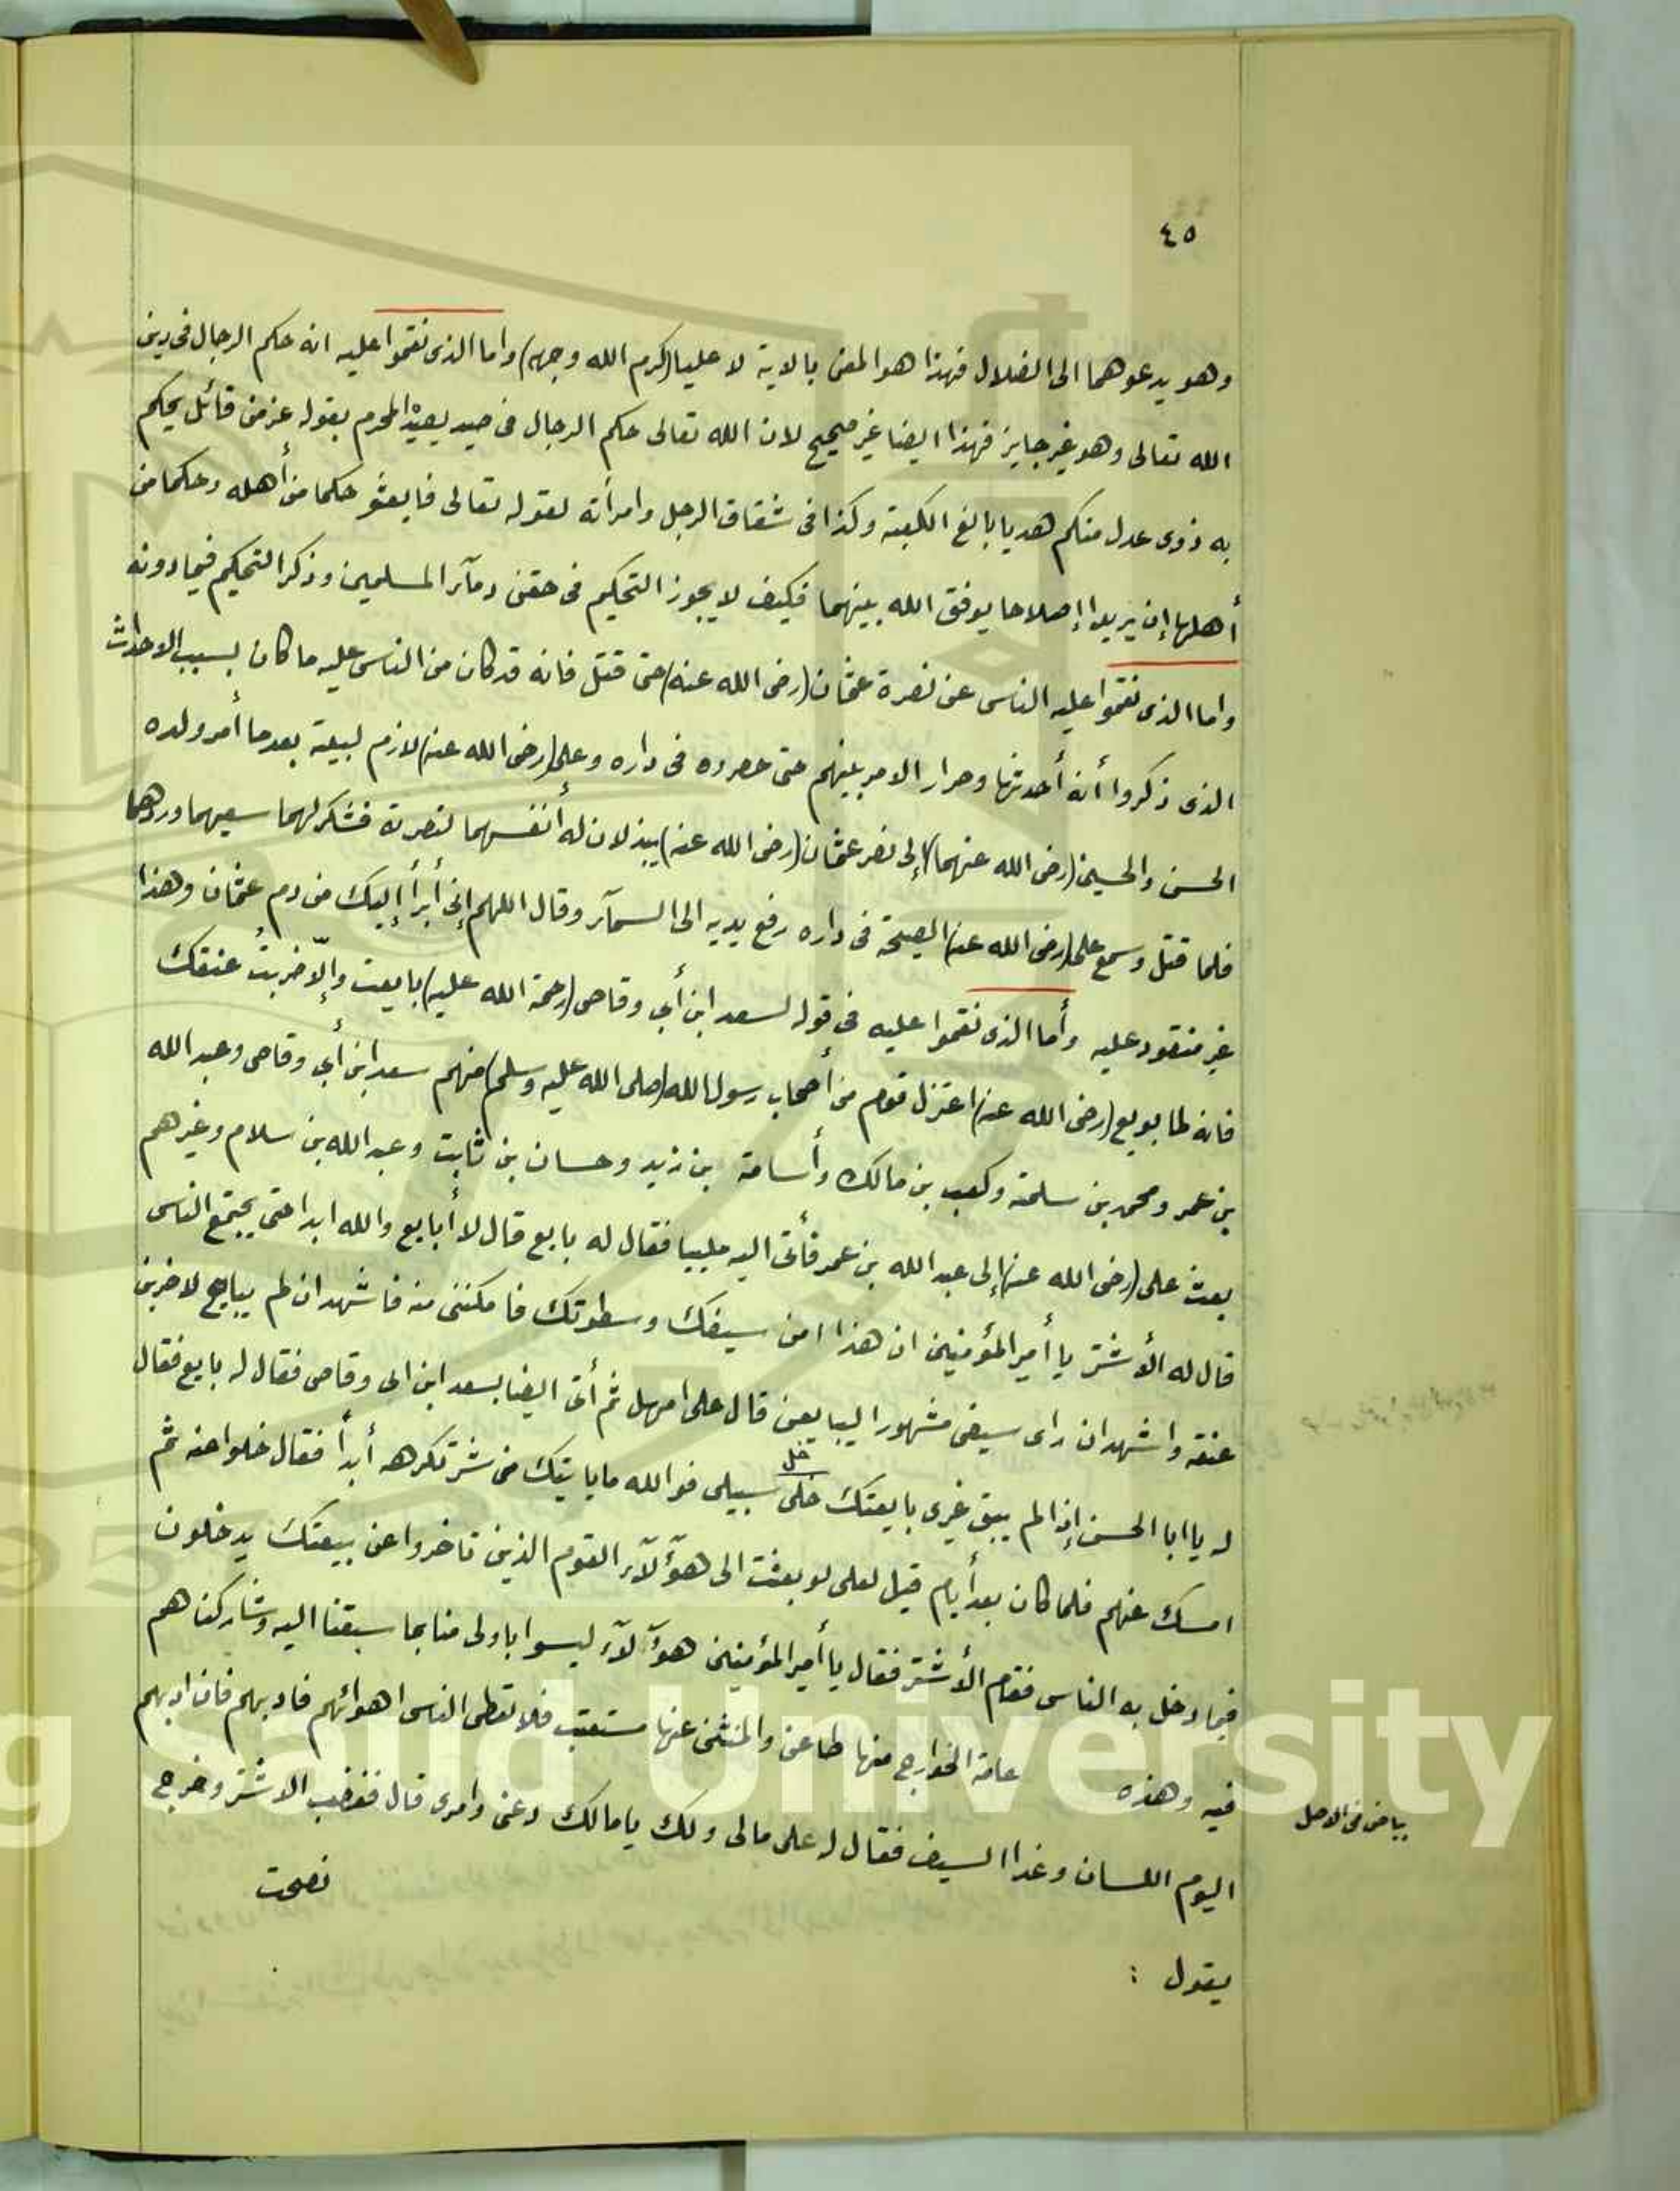 ٤٥
وهو يدعوهما الى الضلال فهذا هو المعنى بالاية لا عليا (كرم الله وجهه) واما الذى نقموا عليه انه حكم الرجال فى دين
الله تعالى وهو غير جايز فهذا ايضا غير صحيح لان الله تعالى حكم الرجال فى صيد يصيده المحرم بقوله عز من قائل يحكم
به ذوى عدل منكم هديا بالغ الكعبة وكذا فى شقاق الرجل وامرأته لقوله تعالى فابعثو حكما من أهله وحكما من
أهلها إن يريدا إصلاحا يوفق الله بينهما فكيف لا يجوز التحكيم فى حقن دمآء المسلمين وذكر التحكيم فيما دونه
واما الذى نقموا عليه الناس عن نصرة عثمان (رضى الله عنه) حتى قتل فانه قد كان من الناس عليه ما كان بسبب الاحداث
الذى ذكروا أنه أحدثها وصار الامر بينهم حتى حصروه فى داره وعلى (رضى الله عنه) لازم لبيته بعدما أمر ولده
الحسن والحسين (رضى الله عنهما) إلى نصر عثمان (رضى الله عنه) يبذلان له أنفسهما لنصرته فشكر لهما سعيهما وردهما
فلما قتل وسمع على (رضى الله عنه) الصيحة فى داره رفع يديه الى السمآء وقال اللهم إنى أبرأ إليك من دم عثمان وهذا
غير منقود عليه وأما الذى نقموا عليه فى قوله لسعد ابن أبى وقاص (رحمة الله عليه) بايعت وإلّا ضربتُ عنقك
فانه لما بويع (رضى الله عنه) اعتزل قوم من أصحاب رسول الله (صلى الله عليه وسلم) منهم سعد ابن أبى وقاص وعبد الله
بن عمر ومحمد بن سلمة وكعب بن مالك وأسامة بن زيد وحسان بن ثابت وعبد الله بن سلام وغيرهم
بعث على (رضى الله عنه) إلى عبد الله بن عمر فأتى اليه ملببا فقال له بايع قال لا أبايع والله ابدا حتى يجتمع الناس
قال له الأشتر يا أمير المؤمنين ان هذا امن سيفك وسطوتك فامكننى منه فاشهد ان لم يبايع لاضربن
عنقه واشهد ان راى سيفى مشهورا ليبايعن قال على امهل ثم أتى ايضا بسعد ابن ابى وقاص فقال له بايع فقال
خل
له يا ابا الحسن إذا لم يبق غيرى بايعتك خلى سبيلى فوالله ما ياتيك من شر تكرهه أبداً فقال خلوا عنه ثم
امسك عنهم فلما كان بعد أيام قيل لعلى لو بعثت الى هؤلآء القوم الذين تاخروا عن بيعتك يدخلون
فيما دخل به الناس فقام الأشتر فقال يا أمير المؤمنين هؤلآء ليسوا باولى منا بما سبقنا اليه وشاركناهم
فيه وهذه عامة الخوارج منها طاعن والمنثنى عنها مستعتب فلا تعطى الناس اهوائهم فادبهم فان ادبهم
بياض فى الاصل
اليوم اللسان وغدا السيف فقال له على مالى ولك يا مالك دعنى وامرى قال فغضب الاشتر وخرج
يقول :
نصحت